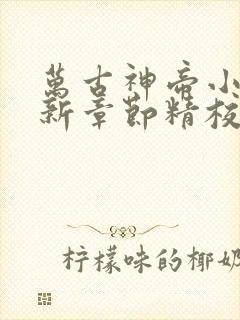 萬古神帝小
新章節精校
柠檬味的椰奶